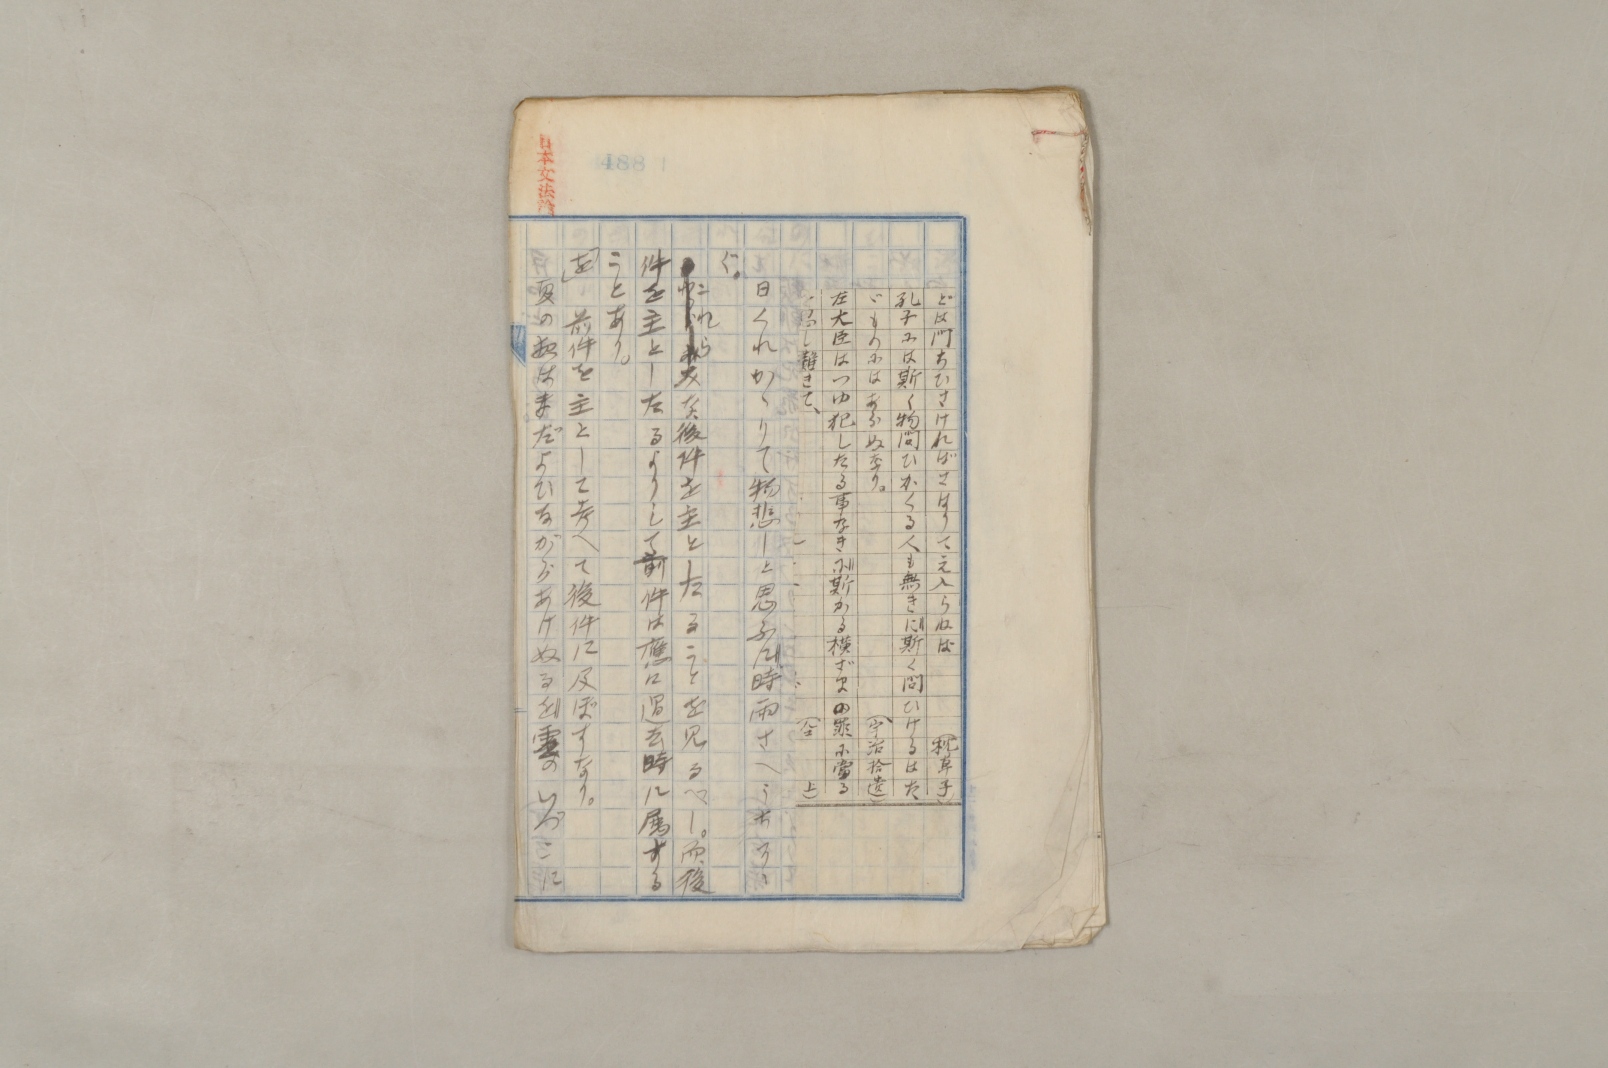 日本文法論
488
どは門ちひさければさはりてえ入らねば (枕草子)
孔子には斯く物問ひかくる人も無きに斯く問ひけるはた
ゞものにはあらぬなり。 (宇治拾遺)
左大臣はつゆ犯したる事なきに斯かる横ざまの罪に當る
し難きて、 (仝 上)
日くれかゝりて物悲しと思ふに時雨さへうちそゝ
ぐ。
これら皆後件を主としたることを見るべし。而後
件を主としたるよりして前件は應に過去時に属する
ことあり。
「を」 前件を主として考へて後件に及ぼすなり。
夏の夜はまだよひながらあけぬるを雲のいづこに